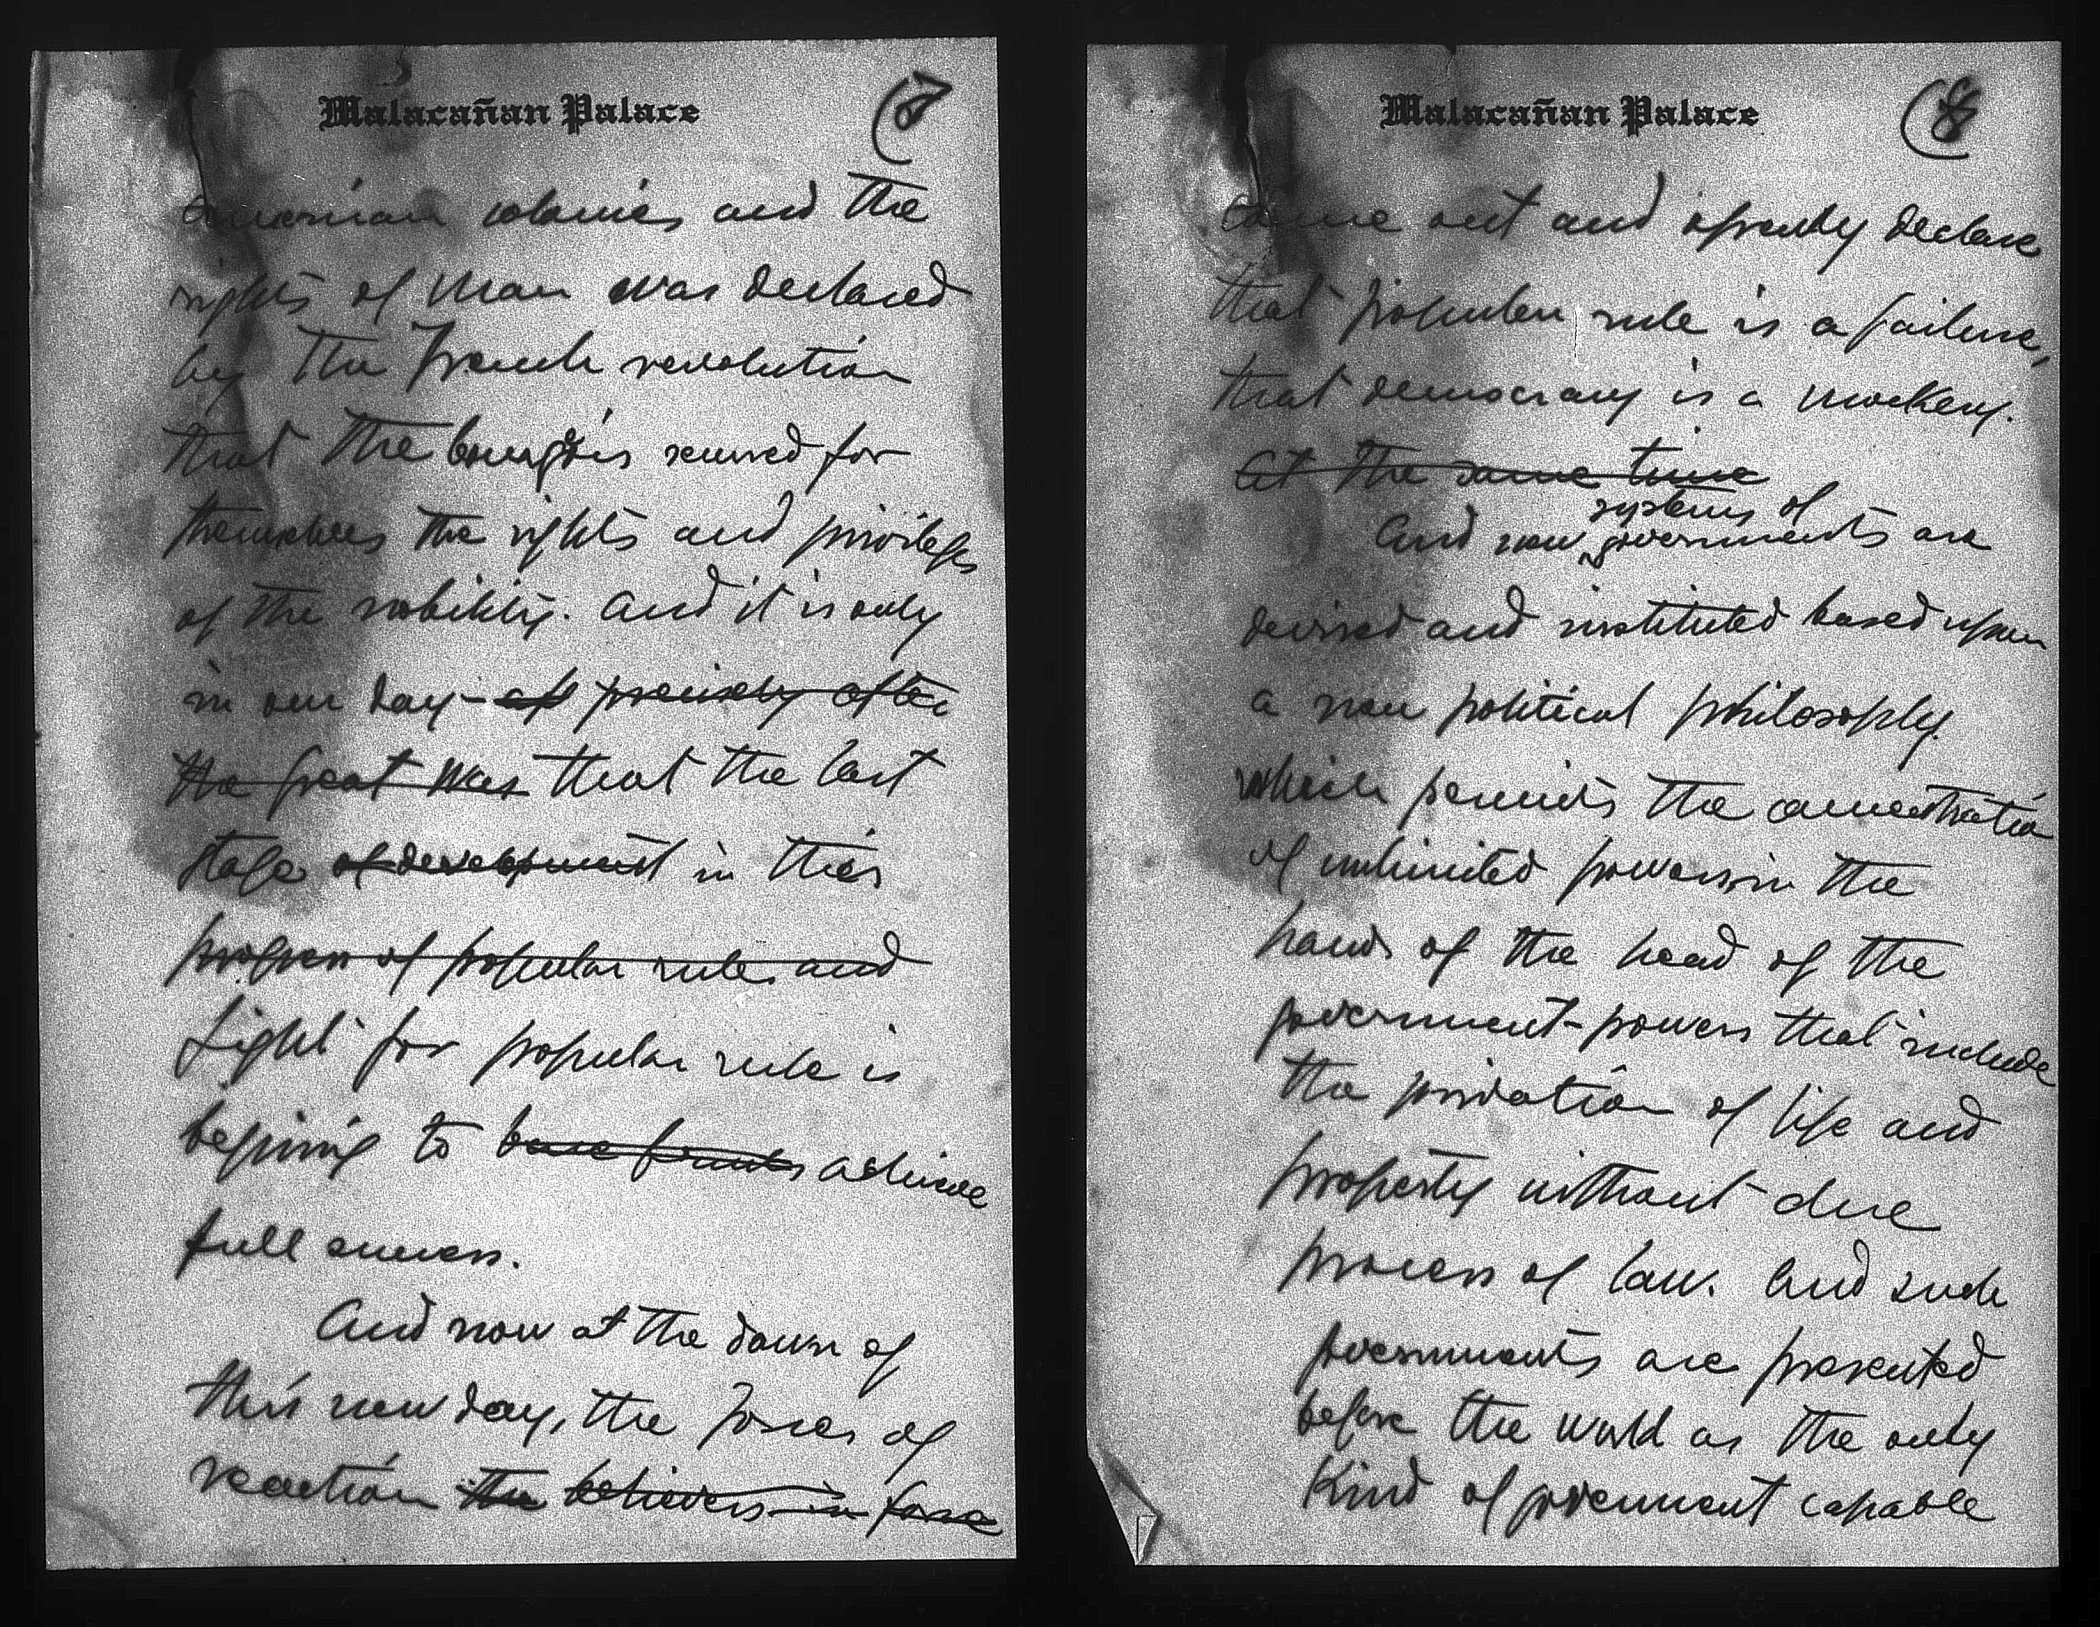 Malacañan Palace
7
American colonies and the
rights of man was declared
by the French revolution
that the bourgois secured for
themselves the rights and privileges
of the nobility. And it is only
in our day - precisely after
the great war that the last
stage of development in this
progress of popular rule and
fight for popular rule is
begining to bear fruits achieve
full success.
And now at the dawn of
this new day, the forces of
reaction the believers in force
Malacañan Palace
8
come out and openly declare
that popular rule is a failure,
that democracy is a mockery.
At the same time
systems of
And new governments are
devised and instituted based upon
a new political philosophy
which permits the concentration
of unlimited powers in the
hands of the head of the
government - powers that include
the privation of life and
property without due
process of law. And such
governments are presented
before the world as the only
kind of government capable